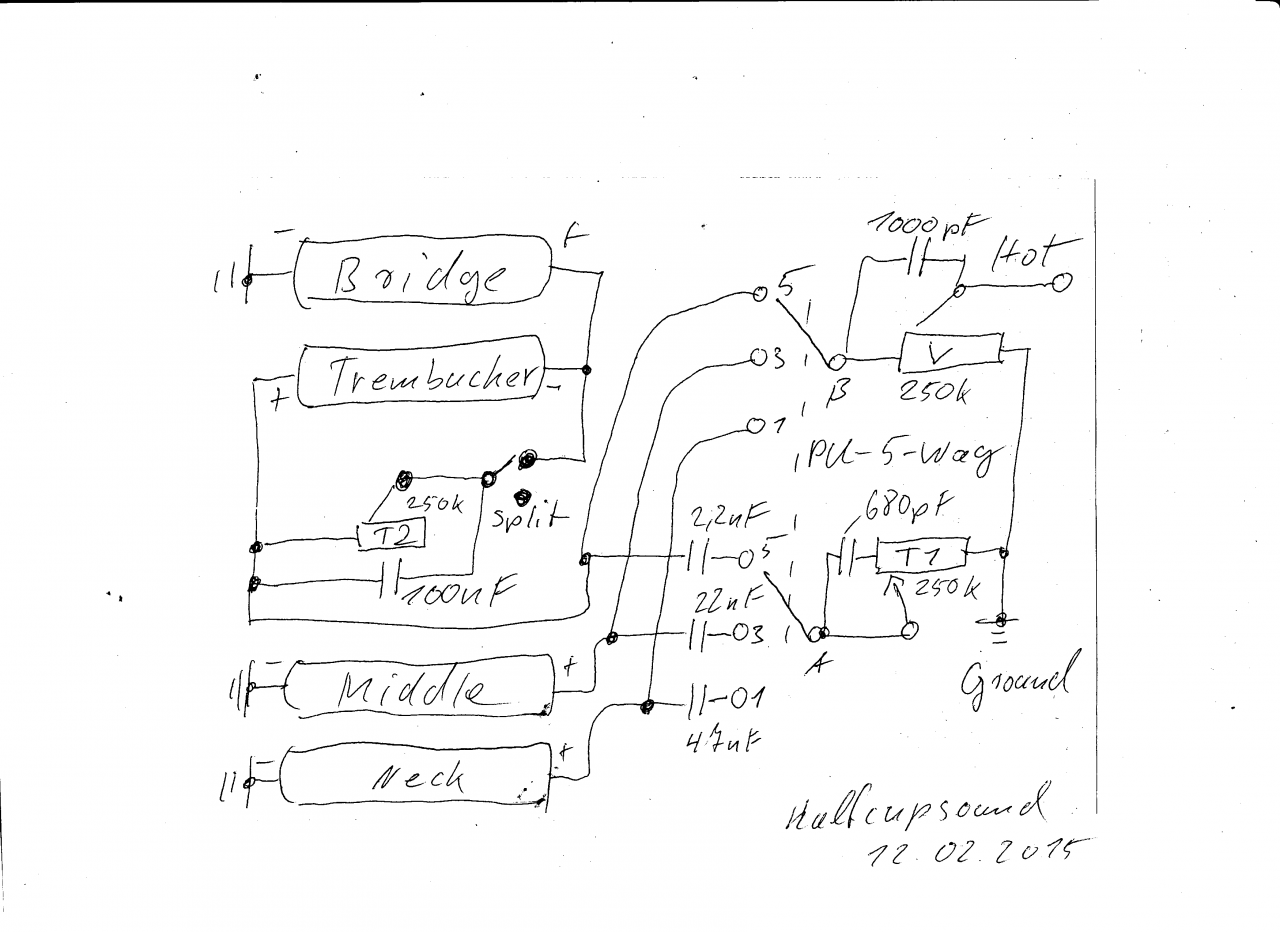 1000pF
Hot
- Bridge +
5
V
250k
B
3
+ Trembucher -
1
PU-5-Way
250k
split
T2
100nF
2,2nF
5
680pF
T1
250k
22nF
3
A
Ground
- Middle +
1
4,7nF
- Neck +
12.02.2015